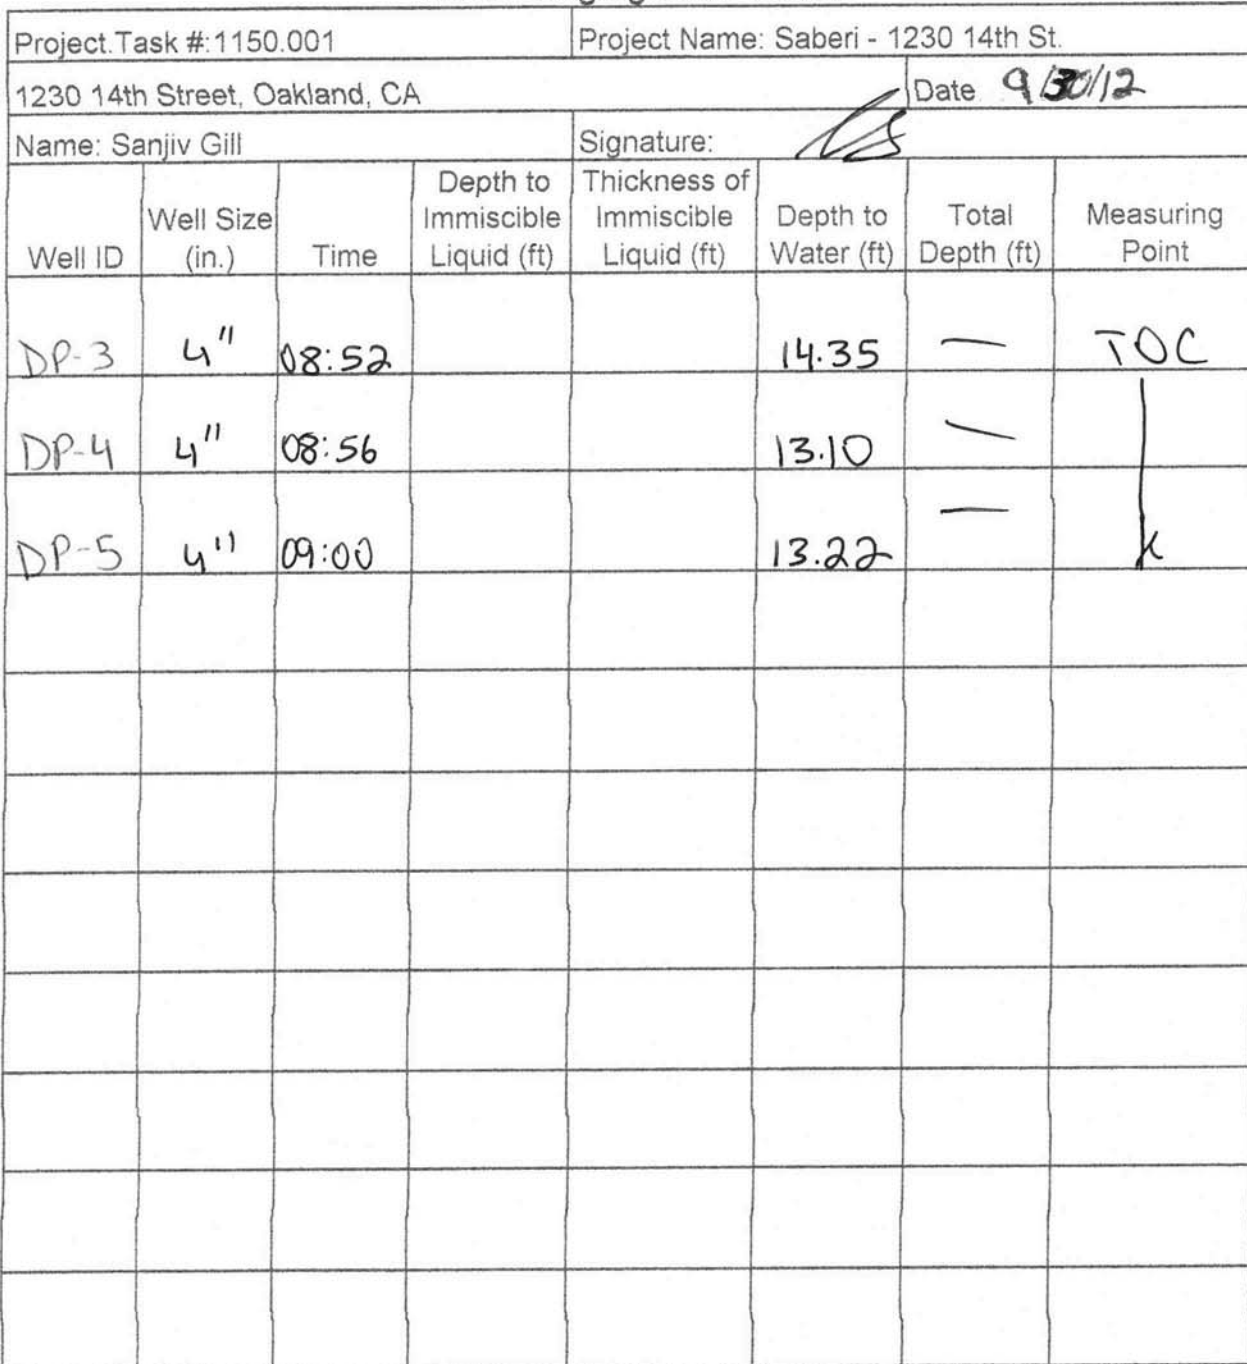 Project.Task #:1150.001 Project Name: Saberi - 1230 14th St.
1230 14th Street, Oakland, CA Date 9/30/12
Name: Sanjiv Gill Signature:
Well ID Well Size (in.) Time Depth to Immiscible Liquid (ft) Thickness of Immiscible Liquid (ft) Depth to Water (ft) Total Depth (ft) Measuring Point
DP-3 4" 08:52 14.35 — TOC
DP-4 4" 08:56 13.10 —
DP-5 4" 09:00 13.22 —